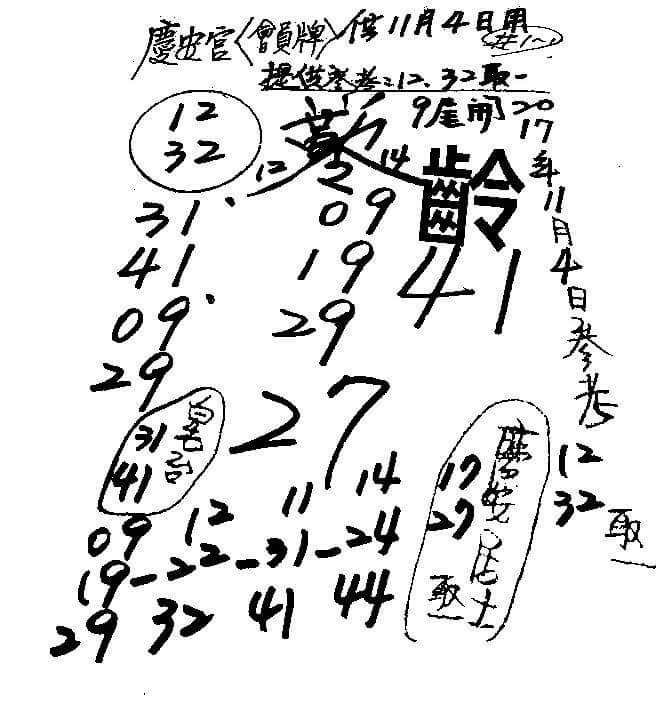 慶安宮〈會員牌〉供11月4日用
提供參考:12.32取一
9尾開
2017年11月4日參考
12
32
12 2 14
齡
31. 09
41 19 41
09. 29
29
27
31
41
09 12 11 14
19-22-31-24
29 32 41 44
17
27
慶安居士
取一
12
32
取一